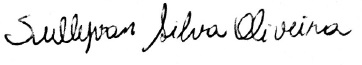 Sullyvan Silva Oliveira